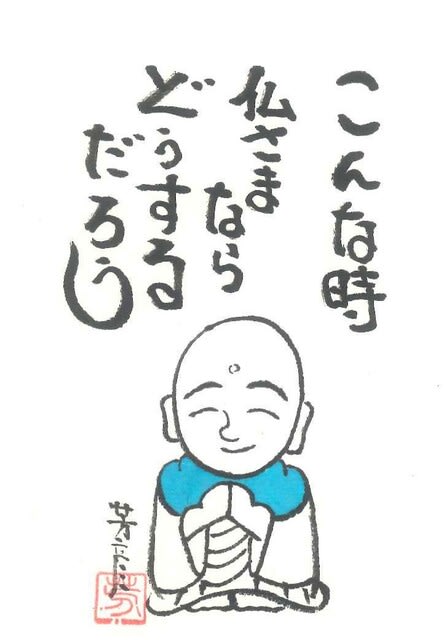 こんな時
仏さま
なら
どうする
だろう
芳